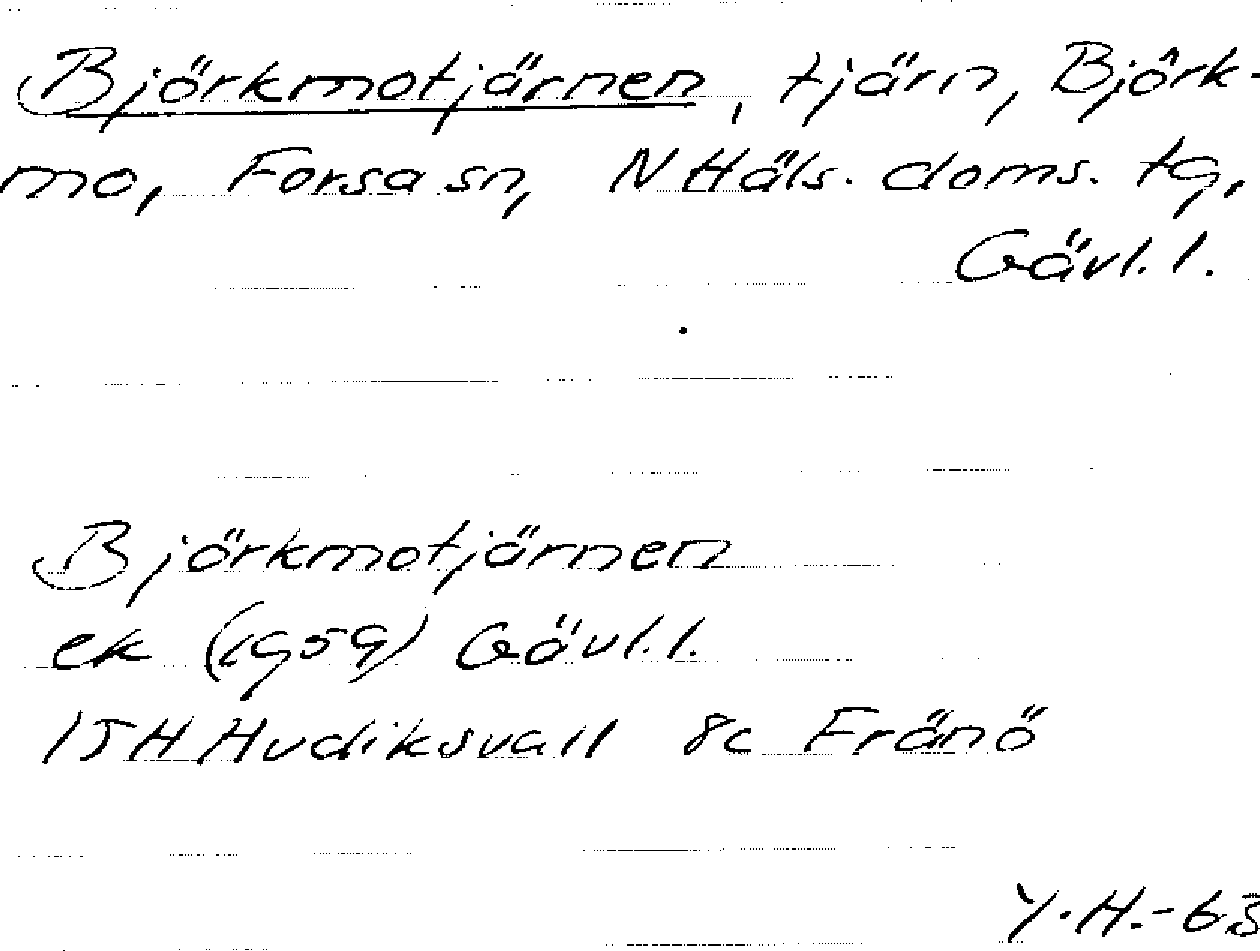 Björkmotjärnen, tjärn, Björk-
mo, Forsa sn, N Häls. doms. tg,
Gävl. l.
Björkmotjärnen
ek (1959) Gävl. l.
15H Hudiksvall 8c Fränö
Y.H.-63